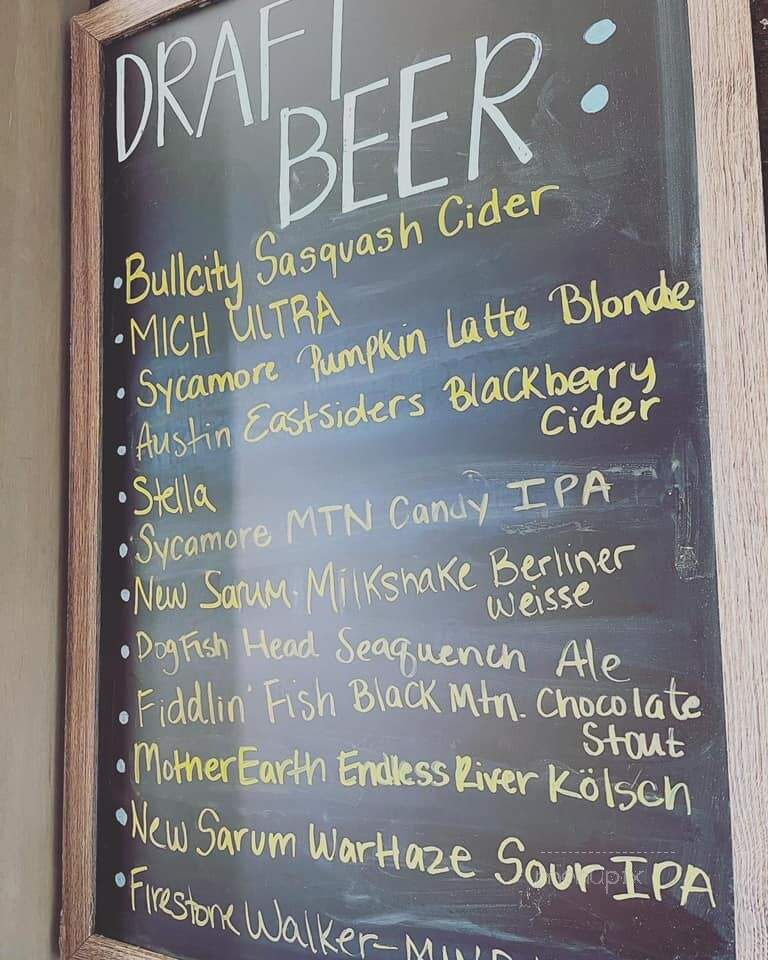 DRAFT
BEER:
•Bullcity Sasquash Cider
•MICH ULTRA
•Sycamore Pumpkin Latte Blonde
•Austin Eastsiders Blackberry
Cider
•Stella
•Sycamore MTN Candy IPA
•New Sarum Milkshake Berliner
Weisse
•DogFish Head Seaquench Ale
•Fiddlin' Fish Black Mtn. Chocolate
Stout
•MotherEarth Endless River Kölsch
•New Sarum WarHaze Sour IPA
•Firestone Walker-